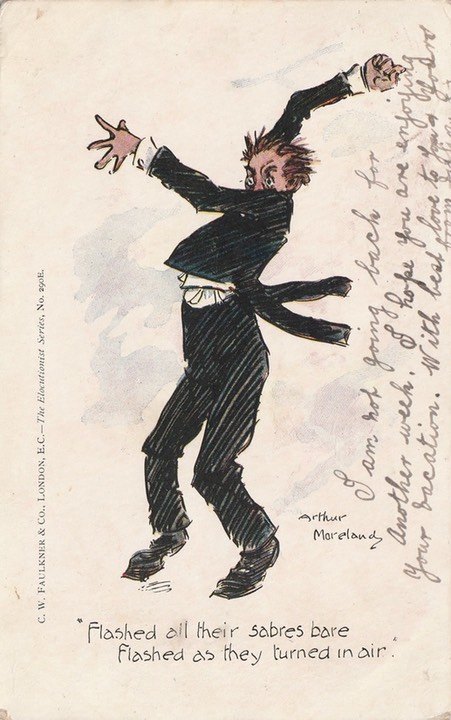 C. W. FAULKNER & CO., LONDON, E.C.—The Elocutionist Series, No. 290E.
I am not going back for
Another week. I hope you are enjoying
Your vacation. With best love to
from
Arthur
Moreland
"Flashed all their sabres bare
Flashed as they turned in air."